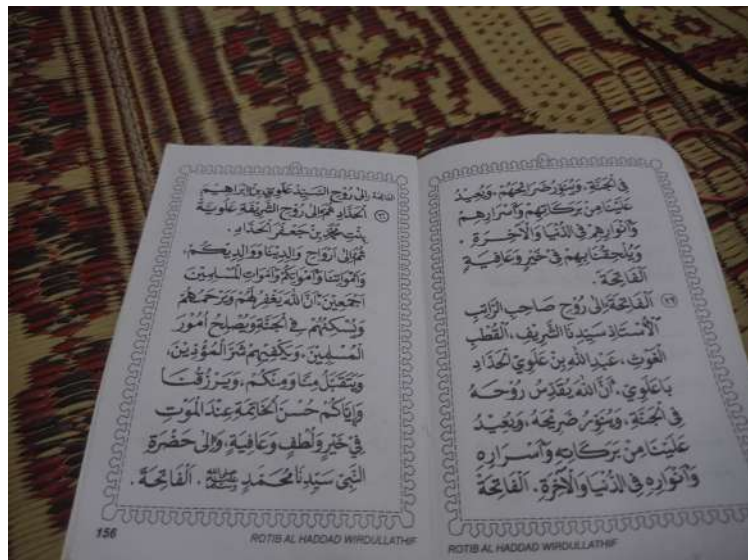 فِي الْجَنَّةِ، وَيُنَوِّرُ ضَرَائِحَهُمْ، وَيُعِيْدُ
عَلَيْنَا مِنْ بَرَكَاتِهِمْ وَأَسْرَارِهِمْ
وَأَنْوَارِهِمْ فِي الدُّنْيَا وَالْآخِرَةِ.
وَيُلْحِقُنَا بِهِمْ فِي خَيْرٍ وَعَافِيَةٍ
اَلْفَاتِحَةَ.
اَلْفَاتِحَةَ إِلَى رُوْحِ صَاحِبِ الرَّاتِبِ
اَلْأُسْتَاذِ سَيِّدِنَا الشَّرِيْفِ، اَلْقُطْبِ
الْغَوْثِ، عَبْدِ اللهِ بْنِ عَلَوِي الْحَدَّادِ
بَاعَلَوِيْ، أَنَّ اللهَ يُقَدِّسُ رُوْحَهُ
فِي الْجَنَّةِ، وَيُنَوِّرُ ضَرِيْحَهُ، وَيُعِيْدُ
عَلَيْنَا مِنْ بَرَكَاتِهِ وَأَسْرَارِهِ
وَأَنْوَارِهِ فِي الدُّنْيَا وَالْآخِرَةِ. اَلْفَاتِحَةَ
ROTIB AL HADDAD WIRDULLATHIF
الفاتحة إِلَى رُوْحِ السَّيِّدِ عَلَوِيِّ بْنِ إِبْرَاهِيْمَ
الْحَدَّادِ ثُمَّ إِلَى رُوْحِ الشَّرِيْفَةِ عَلَوِيَّةَ
بِنْتِ مُحَمَّدِ بْنِ جَعْفَرِ الْحَدَّادِ.
ثُمَّ إِلَى أَرْوَاحِ وَالِدِيْنَا وَوَالِدِيْكُمْ،
وَأَمْوَاتِنَا وَأَمْوَاتِكُمْ وَأَمْوَاتِ الْمُسْلِمِيْنَ
أَجْمَعِيْنَ، أَنَّ اللهَ يَغْفِرُ لَهُمْ وَيَرْحَمُهُمْ
وَيُسْكِنُهُمْ فِي الْجَنَّةِ وَيُصْلِحُ أُمُوْرَ
الْمُسْلِمِيْنَ، وَيَكْفِيْهِمْ شَرَّ الْمُؤْذِيْنَ،
وَيَتَقَبَّلُ مِنَّا وَمِنْكُمْ، وَيَرْزُقُنَا
وَإِيَّاكُمْ حُسْنَ الْخَاتِمَةِ عِنْدَ الْمَوْتِ
فِي خَيْرٍ وَلُطْفٍ وَعَافِيَةٍ، وَإِلَى حَضْرَةِ
النَّبِيِّ سَيِّدِنَا مُحَمَّدٍ ﷺ. اَلْفَاتِحَةَ.
156
ROTIB AL HADDAD WIRDULLATHIF